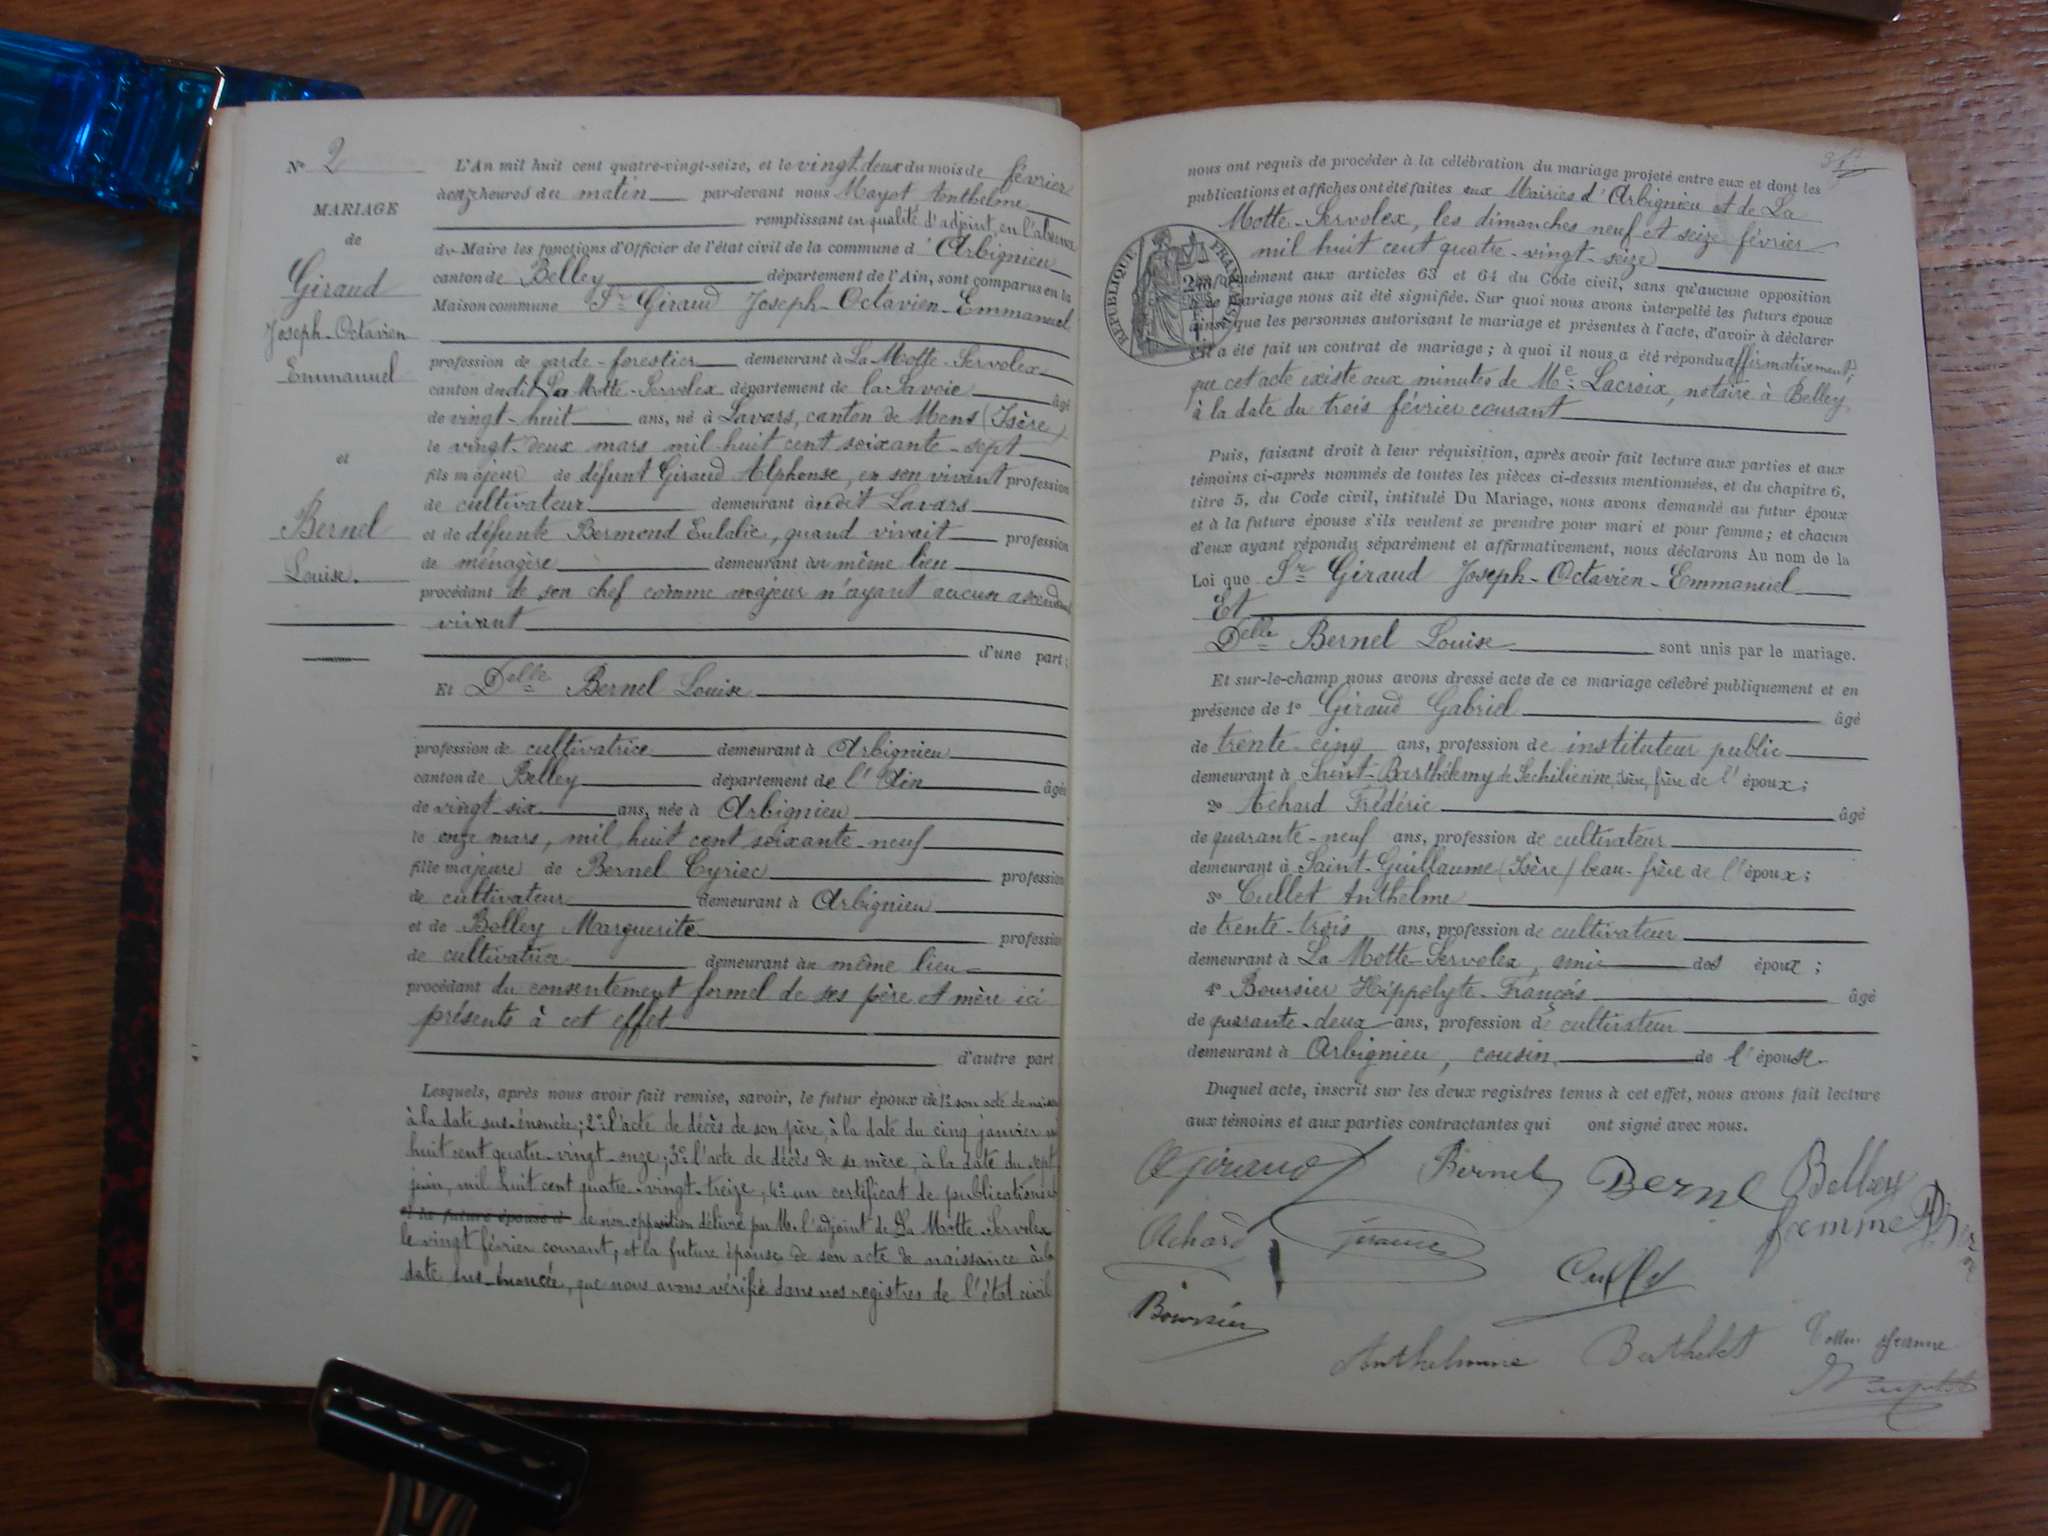 N° 2
MARIAGE
de
Giraud
Joseph-Octavien
Emmanuel
et
Bernel
Louise.
L'An mil huit cent quatre-vingt-seize, et le vingt-deux du mois de février
à onze heures du matin par-devant nous Mayot Anthelme
remplissant en qualité d'adjoint, en l'absence
du Maire les fonctions d'Officier de l'état civil de la commune d'Arbignieu
canton de Belley département de l'Ain, sont comparus en la
Maison commune Sr Giraud Joseph-Octavien-Emmanuel
profession de garde-forestier demeurant à La Motte-Servolex
canton dudit La Motte-Servolex département de la Savoie âgé
de vingt-huit ans, né à Lavars, canton de Mens (Isère)
le vingt-deux mars mil huit cent soixante-sept
fils majeur de défunt Giraud Alphonse, en son vivant profession
de cultivateur demeurant audit Lavars
et de défunte Bermond Eulalie, quand vivait profession
de ménagère demeurant au même lieu
procédant de son chef comme majeur n'ayant aucun ascendant
vivant
d'une part;
Et Delle Bernel Louise
profession de cultivatrice demeurant à Arbignieu
canton de Belley département de l'Ain âgée
de vingt-six ans, née à Arbignieu
le onze mars, mil huit cent soixante-neuf
fille majeure de Bernel Cyriec profession
de cultivateur demeurant à Arbignieu
et de Bolley Marguerite profession
de cultivatrice demeurant au même lieu
procédant du consentement formel de ses père et mère ici
présents à cet effet
d'autre part
Lesquels, après nous avoir fait remise, savoir, le futur époux de 1° son acte de naissance
à la date sus-énoncée; 2° l'acte de décès de son père, à la date du cinq janvier mil
huit cent quatre-vingt-onze; 3° l'acte de décès de sa mère, à la date du sept
juin, mil huit cent quatre-vingt-treize, 4° un certificat de publication et
de non opposition délivré par M. l'adjoint de La Motte-Servolex
le vingt février courant, et la future épouse de son acte de naissance à la
date sus-énoncée, que nous avons vérifié dans nos registres de l'état civil
nous ont requis de procéder à la célébration du mariage projeté entre eux et dont les
publications et affiches ont été faites aux Mairies d'Arbignieu et de La
Motte-Servolex, les dimanches neuf et seize février
mil huit cent quatre-vingt-seize
REPUBLIQUE FRANÇAISE
conformément aux articles 63 et 64 du Code civil, sans qu'aucune opposition
à ce mariage nous ait été signifiée. Sur quoi nous avons interpellé les futurs époux
ainsi que les personnes autorisant le mariage et présentes à l'acte, d'avoir à déclarer
s'il a été fait un contrat de mariage; à quoi il nous a été répondu affirmativement,
que cet acte existe aux minutes de Me Lacroix, notaire à Belley
à la date du trois février courant
Puis, faisant droit à leur réquisition, après avoir fait lecture aux parties et aux
témoins ci-après nommés de toutes les pièces ci-dessus mentionnées, et du chapitre 6,
titre 5, du Code civil, intitulé Du Mariage, nous avons demandé au futur époux
et à la future épouse s'ils veulent se prendre pour mari et pour femme; et chacun
d'eux ayant répondu séparément et affirmativement, nous déclarons Au nom de la
Loi que Sr Giraud Joseph-Octavien-Emmanuel
Et
Delle Bernel Louise sont unis par le mariage.
Et sur-le-champ nous avons dressé acte de ce mariage célébré publiquement et en
présence de 1° Giraud Gabriel âgé
de trente-cinq ans, profession de instituteur public
demeurant à Saint-Barthélemy de Séchilienne, Isère, frère de l'époux;
2° Achard Frédéric âgé
de quarante-neuf ans, profession de cultivateur
demeurant à Saint-Guillaume (Isère) beau-frère de l'époux;
3° Cullet Anthelme
de trente-trois ans, profession de cultivateur
demeurant à La Motte-Servolex, ami des époux;
4° Boursier Hippolyte-François âgé
de quarante-deux ans, profession de cultivateur
demeurant à Arbignieu, cousin de l'épouse.
Duquel acte, inscrit sur les deux registres tenus à cet effet, nous avons fait lecture
aux témoins et aux parties contractantes qui ont signé avec nous.
Giraud Bernel Bernel Bolley
femme
Achard Giraud
Cullet
Boursier
Anthelmine Berthelet Jeanne